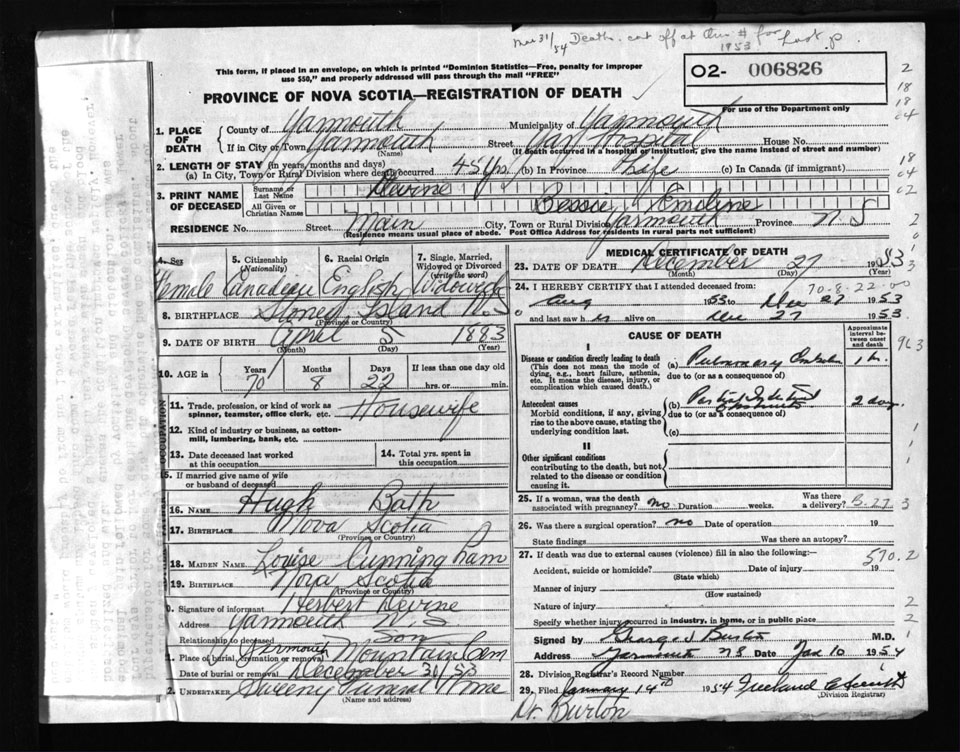 Mar 31/54 Deaths cut off at this # for
1953
This form, if placed in an envelope, on which is printed "Dominion Statistics—Free, penalty for improper
use $50," and properly addressed will pass through the mail "FREE"
PROVINCE OF NOVA SCOTIA—REGISTRATION OF DEATH
02- 006826
For use of the Department only
1. PLACE OF DEATH
County of Yarmouth Municipality of Yarmouth
If in City or Town Yarmouth Street Yar Hospital House No.
(Name) (If death occurred in a hospital or institution, give the name instead of street and number)
2. LENGTH OF STAY (in years, months and days)
(a) In City, Town or Rural Division where death occurred 45 yrs (b) In Province Life (c) In Canada (if immigrant)
3. PRINT NAME OF DECEASED
Surname or Last Name Devine
All Given or Christian Names Bessie Emeline
RESIDENCE No. Street Main City, Town or Rural Division Yarmouth Province N.S
(Residence means usual place of abode. Post Office Address for residents in rural parts not sufficient)
4. Sex Female
5. Citizenship (Nationality) Canadian
6. Racial Origin English
7. Single, Married, Widowed or Divorced (write the word) Widowed
8. BIRTHPLACE Stoney Island N.S
(Province or Country)
9. DATE OF BIRTH April 5 1883
(Month) (Day) (Year)
10. AGE in Years 70 Months 8 Days 22 If less than one day old hrs. or min.
11. Trade, profession, or kind of work as spinner, teamster, office clerk, etc. Housewife
12. Kind of industry or business, as cotton-mill, lumbering, bank, etc.
13. Date deceased last worked at this occupation
14. Total yrs. spent in this occupation
15. If married give name of wife or husband of deceased
16. NAME Hugh Bath
17. BIRTHPLACE Nova Scotia
(Province or Country)
18. MAIDEN NAME Louise Cunningham
19. BIRTHPLACE Nova Scotia
(Province or Country)
0. Signature of informant Herbert Devine
Address Yarmouth N.S
Relationship to deceased Son
1. Place of burial, cremation or removal Yarmouth Mountain Cem
Date of burial or removal December 31/53
2. UNDERTAKER Sweeny Funeral Home
(Name and address)
MEDICAL CERTIFICATE OF DEATH
23. DATE OF DEATH December 27 1953
(Month) (Day) (Year)
24. I HEREBY CERTIFY that I attended deceased from: 70-8-22-00
Aug 1953 to Dec 27 1953
and last saw h er alive on Dec 27 1953
CAUSE OF DEATH
Approximate interval between onset and death
I
Disease or condition directly leading to death
(This does not mean the mode of dying, e.g., heart failure, asthenia, etc. It means the disease, injury, or complication which caused death.)
(a) Pulmonary Embolism 1 hr.
due to (or as a consequence of)
Antecedent causes
Morbid conditions, if any, giving rise to the above cause, stating the underlying condition last.
(b) Partial Intestinal 2 days
due to (or as a consequence of)
(c)
II
Other significant conditions
contributing to the death, but not related to the disease or condition causing it.
25. If a woman, was the death associated with pregnancy? no Duration weeks. Was there a delivery? B-27
26. Was there a surgical operation? no Date of operation 19
State findings Was there an autopsy?
27. If death was due to external causes (violence) fill in also the following:— 570.2
Accident, suicide or homicide? Date of injury 19
(State which)
Manner of injury
(How sustained)
Nature of injury
Specify whether injury occurred in industry, in home, or in public place
Signed by M.D.
Address Yarmouth NS Date Jan 10 1954
28. Division Registrar's Record Number
29. Filed January 14th 1954
(Division Registrar)
Dr. Burton